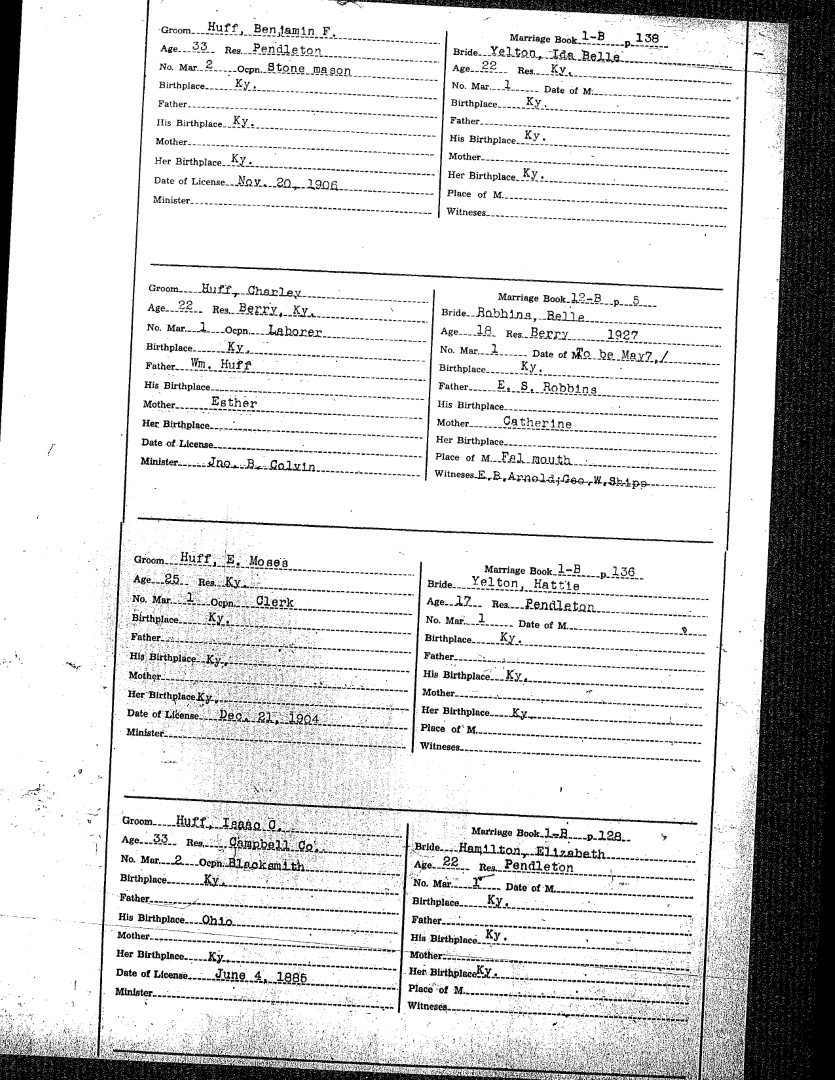 Groom Huff, Benjamin F.
Age 33 Res. Pendleton
No. Mar. 2 Ocpn. Stone mason
Birthplace Ky.
Father
His Birthplace Ky.
Mother
Her Birthplace Ky.
Date of License Nov. 20, 1906
Minister
Marriage Book 1-B p. 138
Bride Yelton, Ida Belle
Age 22 Res. Ky.
No. Mar. 1 Date of M.
Birthplace Ky.
Father
His Birthplace Ky.
Mother
Her Birthplace Ky.
Place of M.
Witnesses
Groom Huff, Charley
Age 22 Res. Berry, Ky.
No. Mar. 1 Ocpn. Laborer
Birthplace Ky.
Father Wm. Huff
His Birthplace
Mother Esther
Her Birthplace
Date of License
Minister Jno. B. Colvin
Marriage Book 12-B p. 5
Bride Robbins, Belle
Age 18 Res. Berry 1927
No. Mar. 1 Date of M. To be May7,/
Birthplace Ky.
Father E. S. Robbins
His Birthplace
Mother Catherine
Her Birthplace
Place of M. Fal mouth
Witnesses E.B.Arnold;Geo.W.Shipp
Groom Huff, E. Moses
Age 25 Res. Ky.
No. Mar. 1 Ocpn. Clerk
Birthplace Ky.
Father
His Birthplace Ky.
Mother
Her Birthplace Ky.
Date of License Dec. 21, 1904
Minister
Marriage Book 1-B p. 136
Bride Yelton, Hattie
Age 17 Res. Pendleton
No. Mar. 1 Date of M.
Birthplace Ky.
Father
His Birthplace Ky.
Mother
Her Birthplace Ky.
Place of M.
Witnesses
Groom Huff, Isaac O.
Age 33 Res. Campbell Co.
No. Mar. 2 Ocpn. Blacksmith
Birthplace Ky.
Father
His Birthplace Ohio
Mother
Her Birthplace Ky.
Date of License June 4, 1885
Minister
Marriage Book 1-B p. 128
Bride Hamilton, Elizabeth
Age 22 Res. Pendleton
No. Mar. 1 Date of M.
Birthplace Ky.
Father
His Birthplace Ky.
Mother
Her Birthplace Ky.
Place of M.
Witnesses